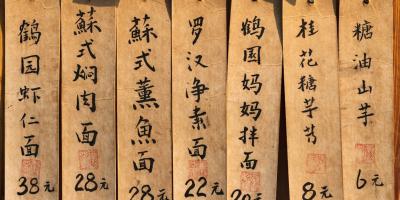 鹤园虾仁面
38元
蘇式焖肉面
28元
蘇式薰魚面
28元
罗汉净素面
22元
鹤园妈妈拌面
元
桂花糖芋苗
8元
糖油山芋
6元